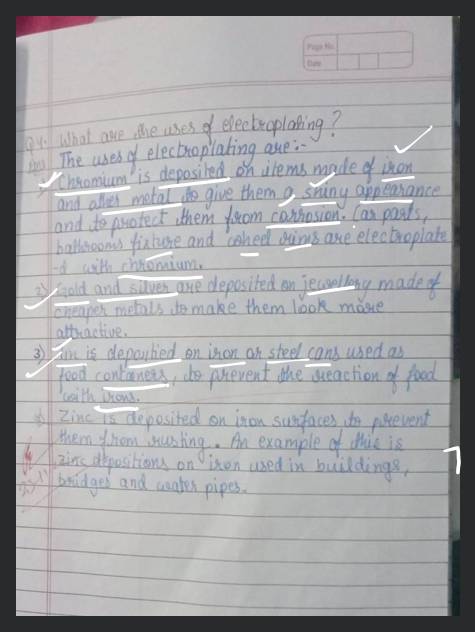 Page No.
Date
Q4. What are the uses of electroplating?
Ans The uses of electroplating are:-
Chromium is deposited on items made of iron
and other metal to give them a shiny appearance
and to protect them from corrosion. Car parts,
bathrooms fixture and wheel rims are electroplate
-d with chromium.
2) Gold and silver are deposited on jewellery made of
cheaper metals to make them look more
attractive.
3) Tin is deposited on iron or steel cans used as
food containers, to prevent the reaction of food
with iron.
Zinc is deposited on iron surfaces to prevent
them from rusting. An example of this is
zinc depositions on iron used in buildings,
bridges and water pipes.